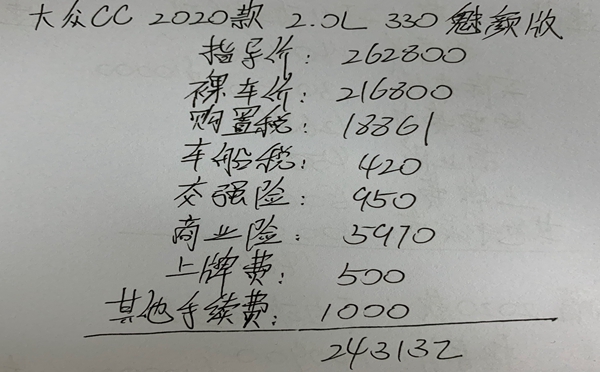 大众CC 2020款 2.0L 330 魅颜版
指导价: 262800
裸车价: 216800
购置税: 18861
车船税: 420
交强险: 950
商业险: 5970
上牌费: 500
其他手续费: 1000
243132